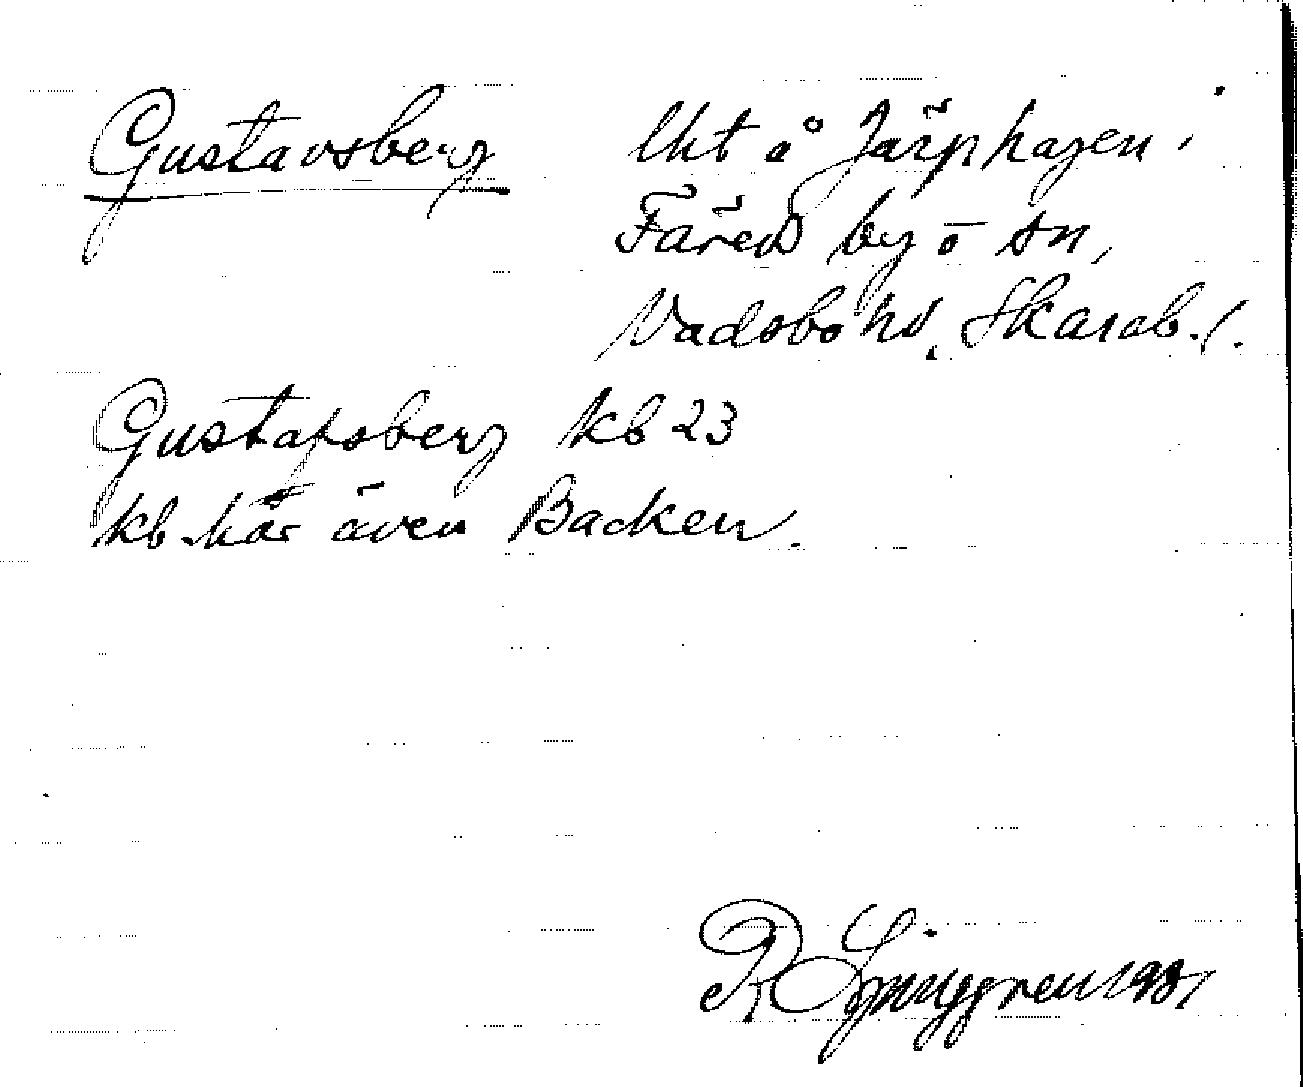 Gustavsberg lht å Järphagen i
Färeds by o sn,
Vadsbo hd, Skarab. l.
Gustafsberg kb 23
kb har även Backen.
R Ljunggren 1981